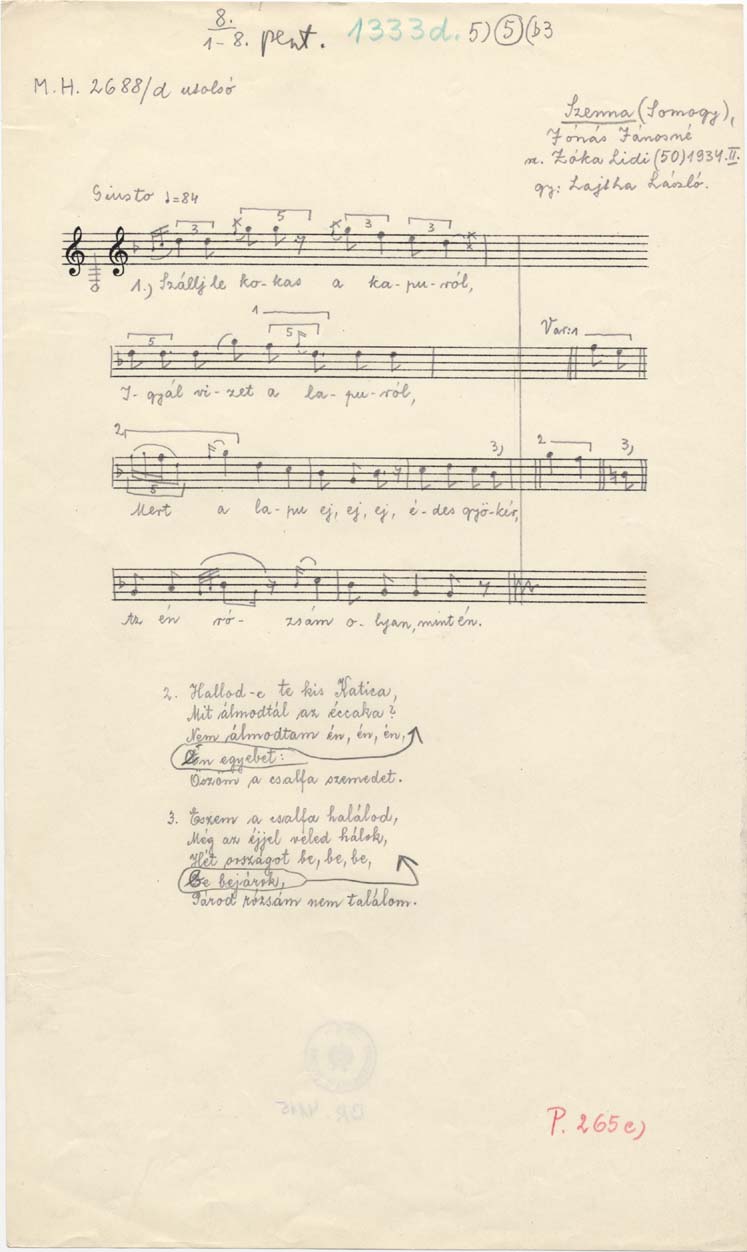 8.
1-8. pent. 1333d. 5) 5 (b3
M.H. 2688/d utolsó
Szenna (Somogy),
Jónás Jánosné
sz. Zóka Lidi (50) 1934.II.
gy: Lajtha László.
Giusto ♩=84
3 5 3 3
1.) Szállj le ko-kas a ka-pu-ról,
1
5 5 Var:1
I-gyál vi-zet a la-pu-ról,
2, 3, 2 3,
5
Mert a la-pu ej, ej, ej, é-des gyö-kér,
Az én ró-zsám o-lyan, mint én.
2. Hallod-e te kis Katica,
Mit álmodtál az éccaka?
Nem álmodtam én, én, én,
Én egyebet:
Öszöm a csalfa szemedet.
3. Eszem a csalfa halálod,
Még az éjjel véled hálok,
Hét országot be, be, be,
Be bejárok,
Párod rózsám nem találom.
P. 265e)